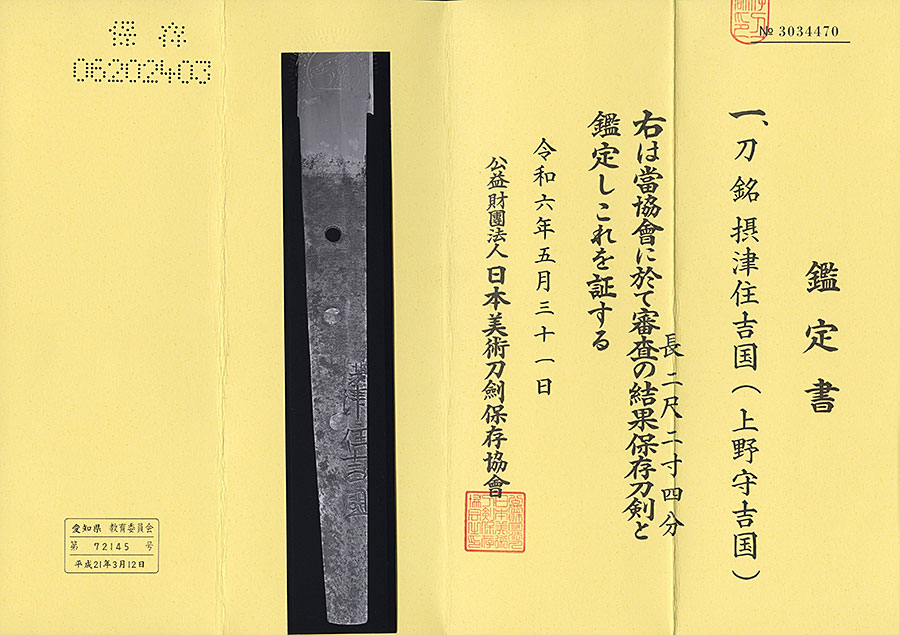 № 3034470
鑑定書
一、刀 銘 摂津住吉国(上野守吉国)
長 二尺二寸四分
右は當協會に於て審査の結果保存刀剣と
鑑定しこれを証する
令和六年五月三十一日
公益財團法人 日本美術刀劍保存協會
摂津住吉国
保存
06202403
愛知県 教育委員会
第 72145 号
平成21年3月12日